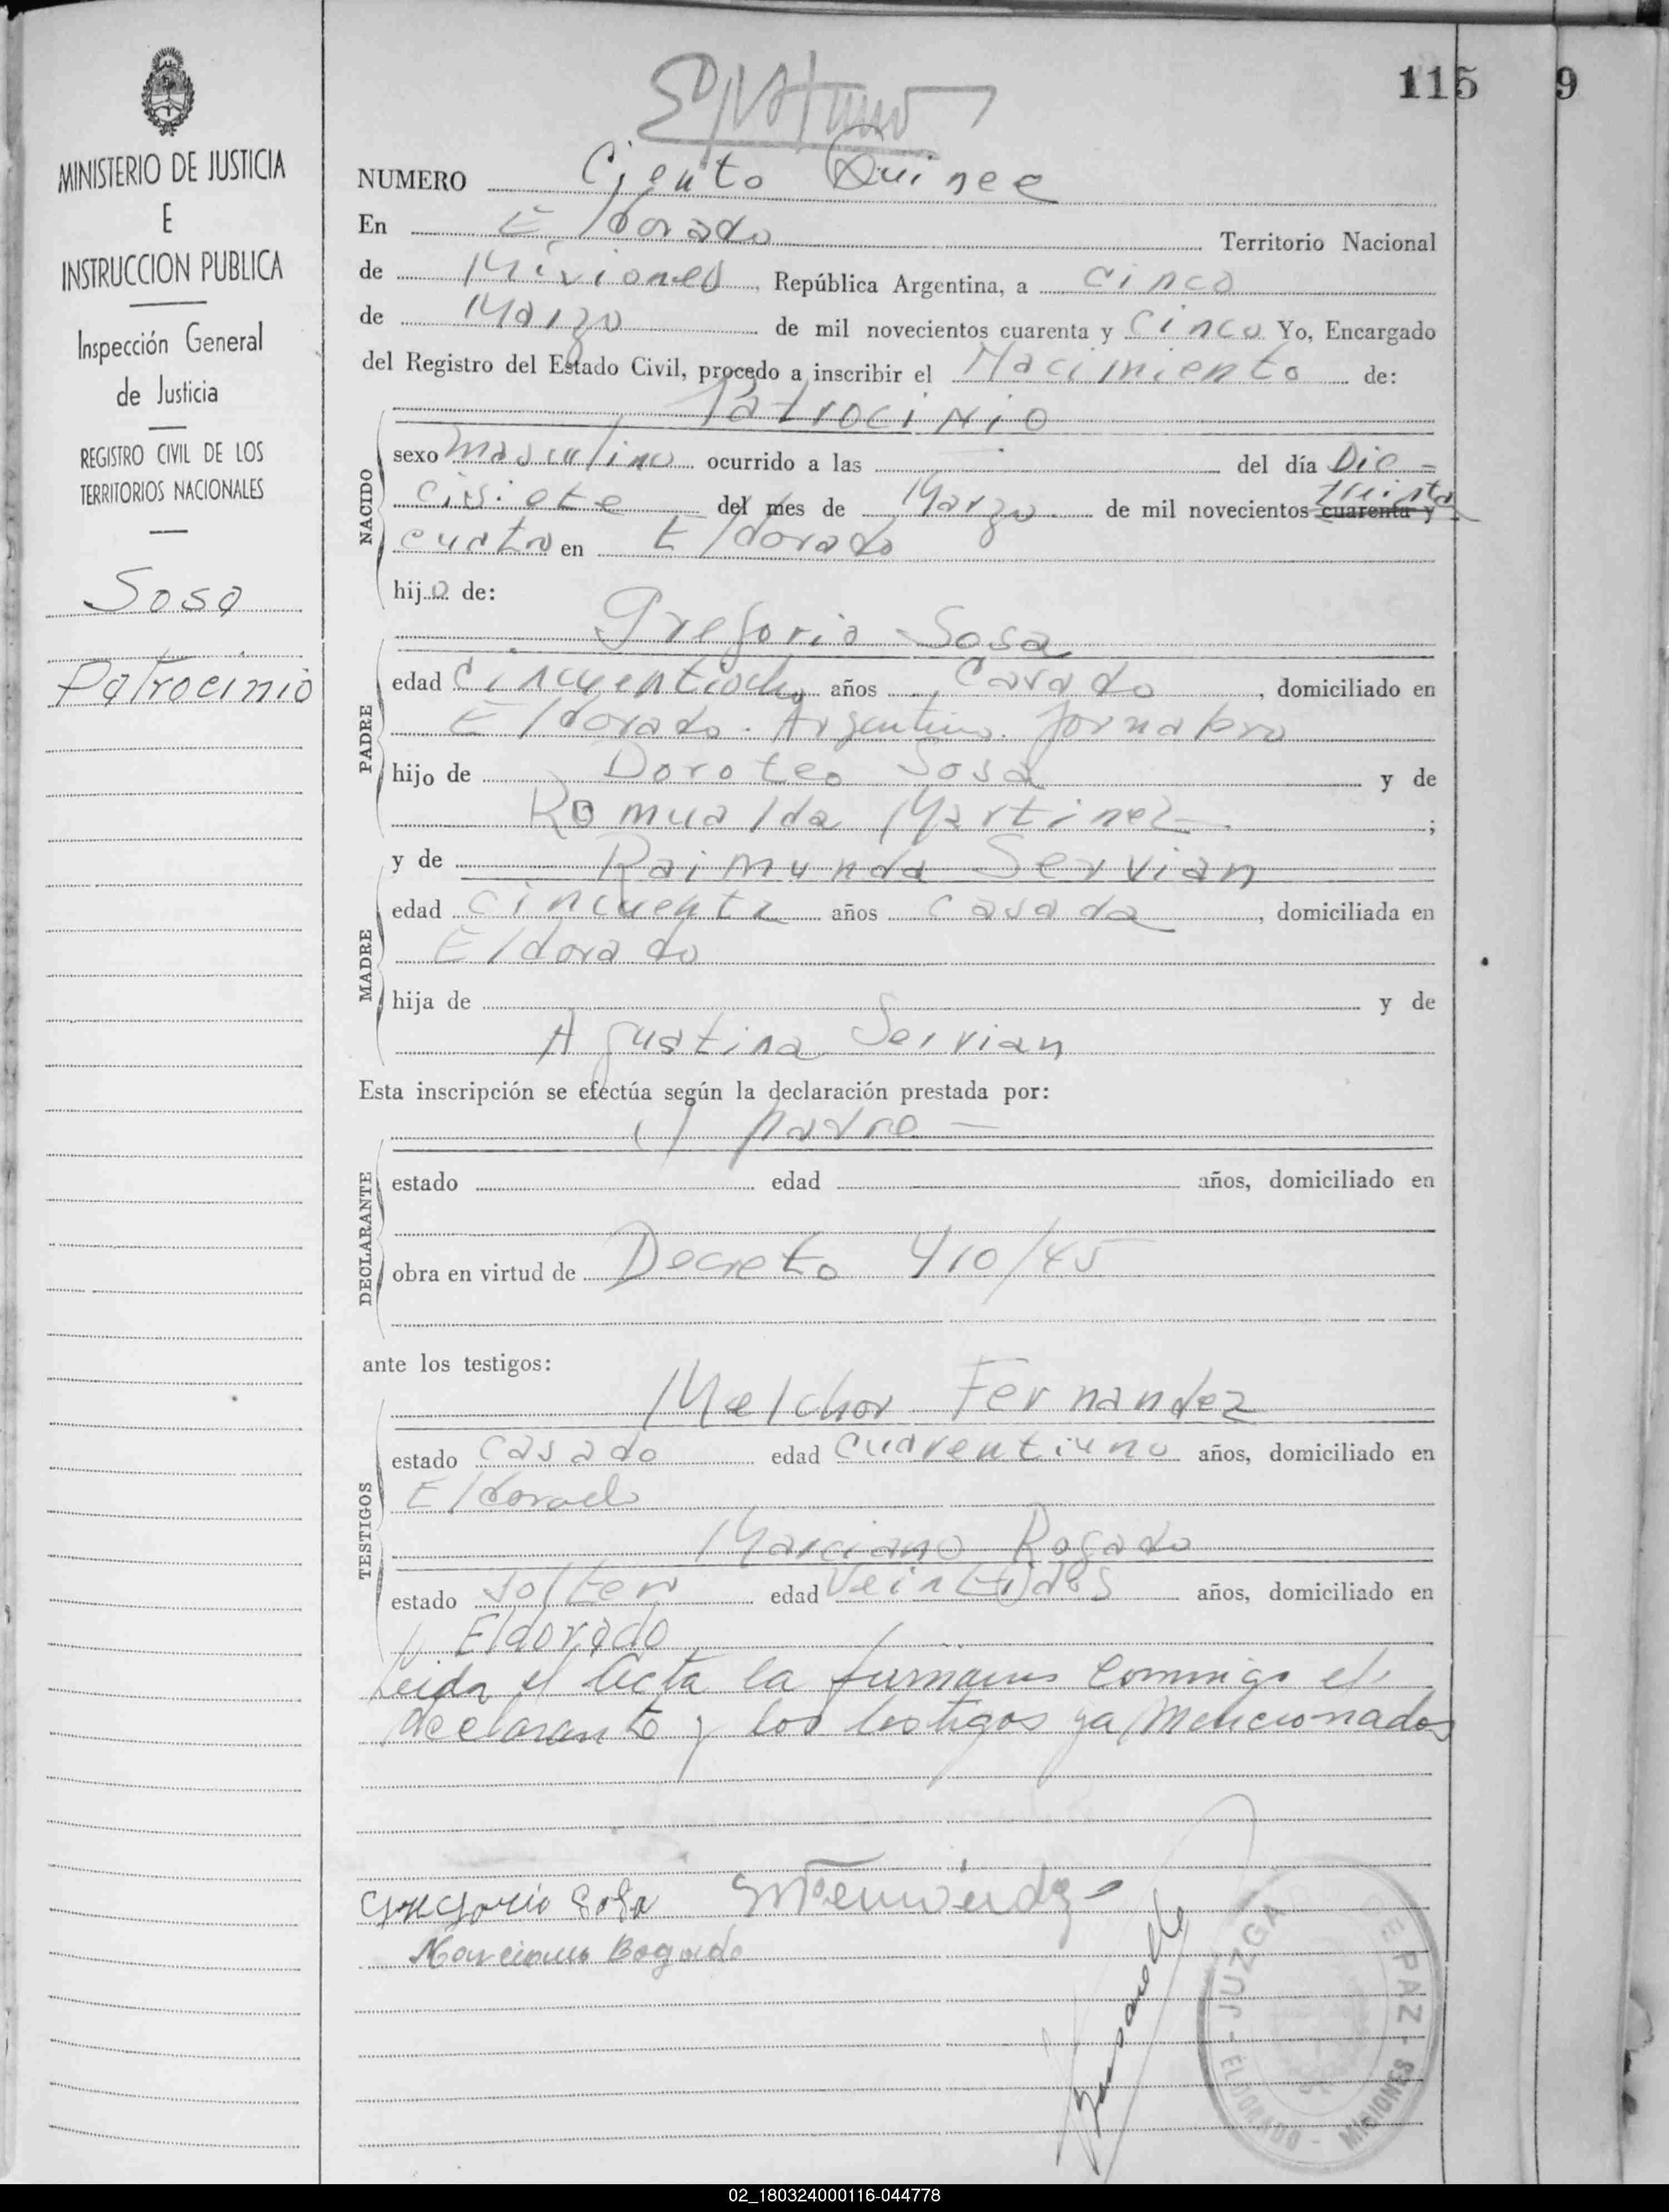 MINISTERIO DE JUSTICIA
E
INSTRUCCION PUBLICA
Inspección General
de Justicia
REGISTRO CIVIL DE LOS
TERRITORIOS NACIONALES
Sosa
Patrocinio
115 9
NUMERO Ciento Quince
En Eldorado Territorio Nacional
de Misiones, República Argentina, a cinco
de Marzo de mil novecientos cuarenta y cinco Yo, Encargado
del Registro del Estado Civil, procedo a inscribir el Nacimiento de:
Patrocinio
NACIDO
sexo masculino ocurrido a las del día Die=
cisiete del mes de Marzo de mil novecientos treinta cuarenta y
cuatro en Eldorado
hijo de:
Gregorio Sosa
PADRE
edad cincuentiocho años Casado, domiciliado en
Eldorado. Argentino. Jornalero
hijo de Doroteo Sosa y de
Romualda Martinez ;
y de Raimunda Servian
MADRE
edad cincuenta años casada, domiciliada en
Eldorado
hija de y de
Agustina Servian
Esta inscripción se efectúa según la declaración prestada por:
el padre —
DECLARANTE
estado edad años, domiciliado en
obra en virtud de Decreto 410/45
ante los testigos:
Melchor Fernandez
TESTIGOS
estado casado edad cuarentiuno años, domiciliado en
Eldorado
Marciano Bogado
estado soltero edad Veintidos años, domiciliado en
Eldorado
Leida el Acta la firmamos conmigo el
declarante y los testigos ya mencionados
Gregorio Sosa
Marciano Bogado
JUZGADO DE PAZ - ELDORADO - MISIONES
02_180324000116-044778